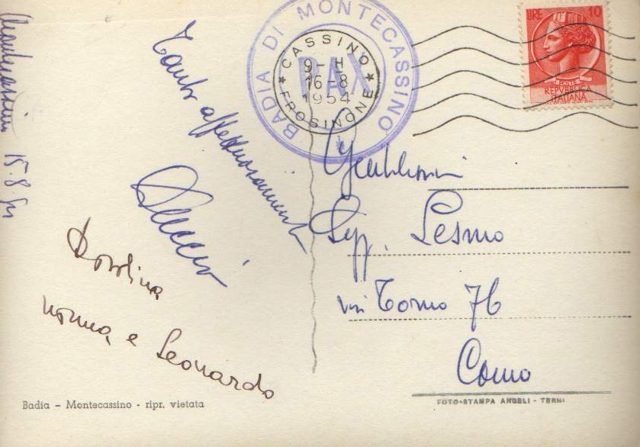 Montecassino 15.8.54
Tanto affettuosamente
Duccio
Rosolina
nonna, e Leonardo
Badia - Montecassino - ripr. vietata
BADIA DI MONTECASSINO
PAX
CASSINO
9-H
16-8
1954
FROSINONE
LIRE 10
REPVBBLICA
ITALIANA
Gentilissimi
Sigg. Lesmo
via Torno 76
Como
FOTO-STAMPA ANGELI - TERNI